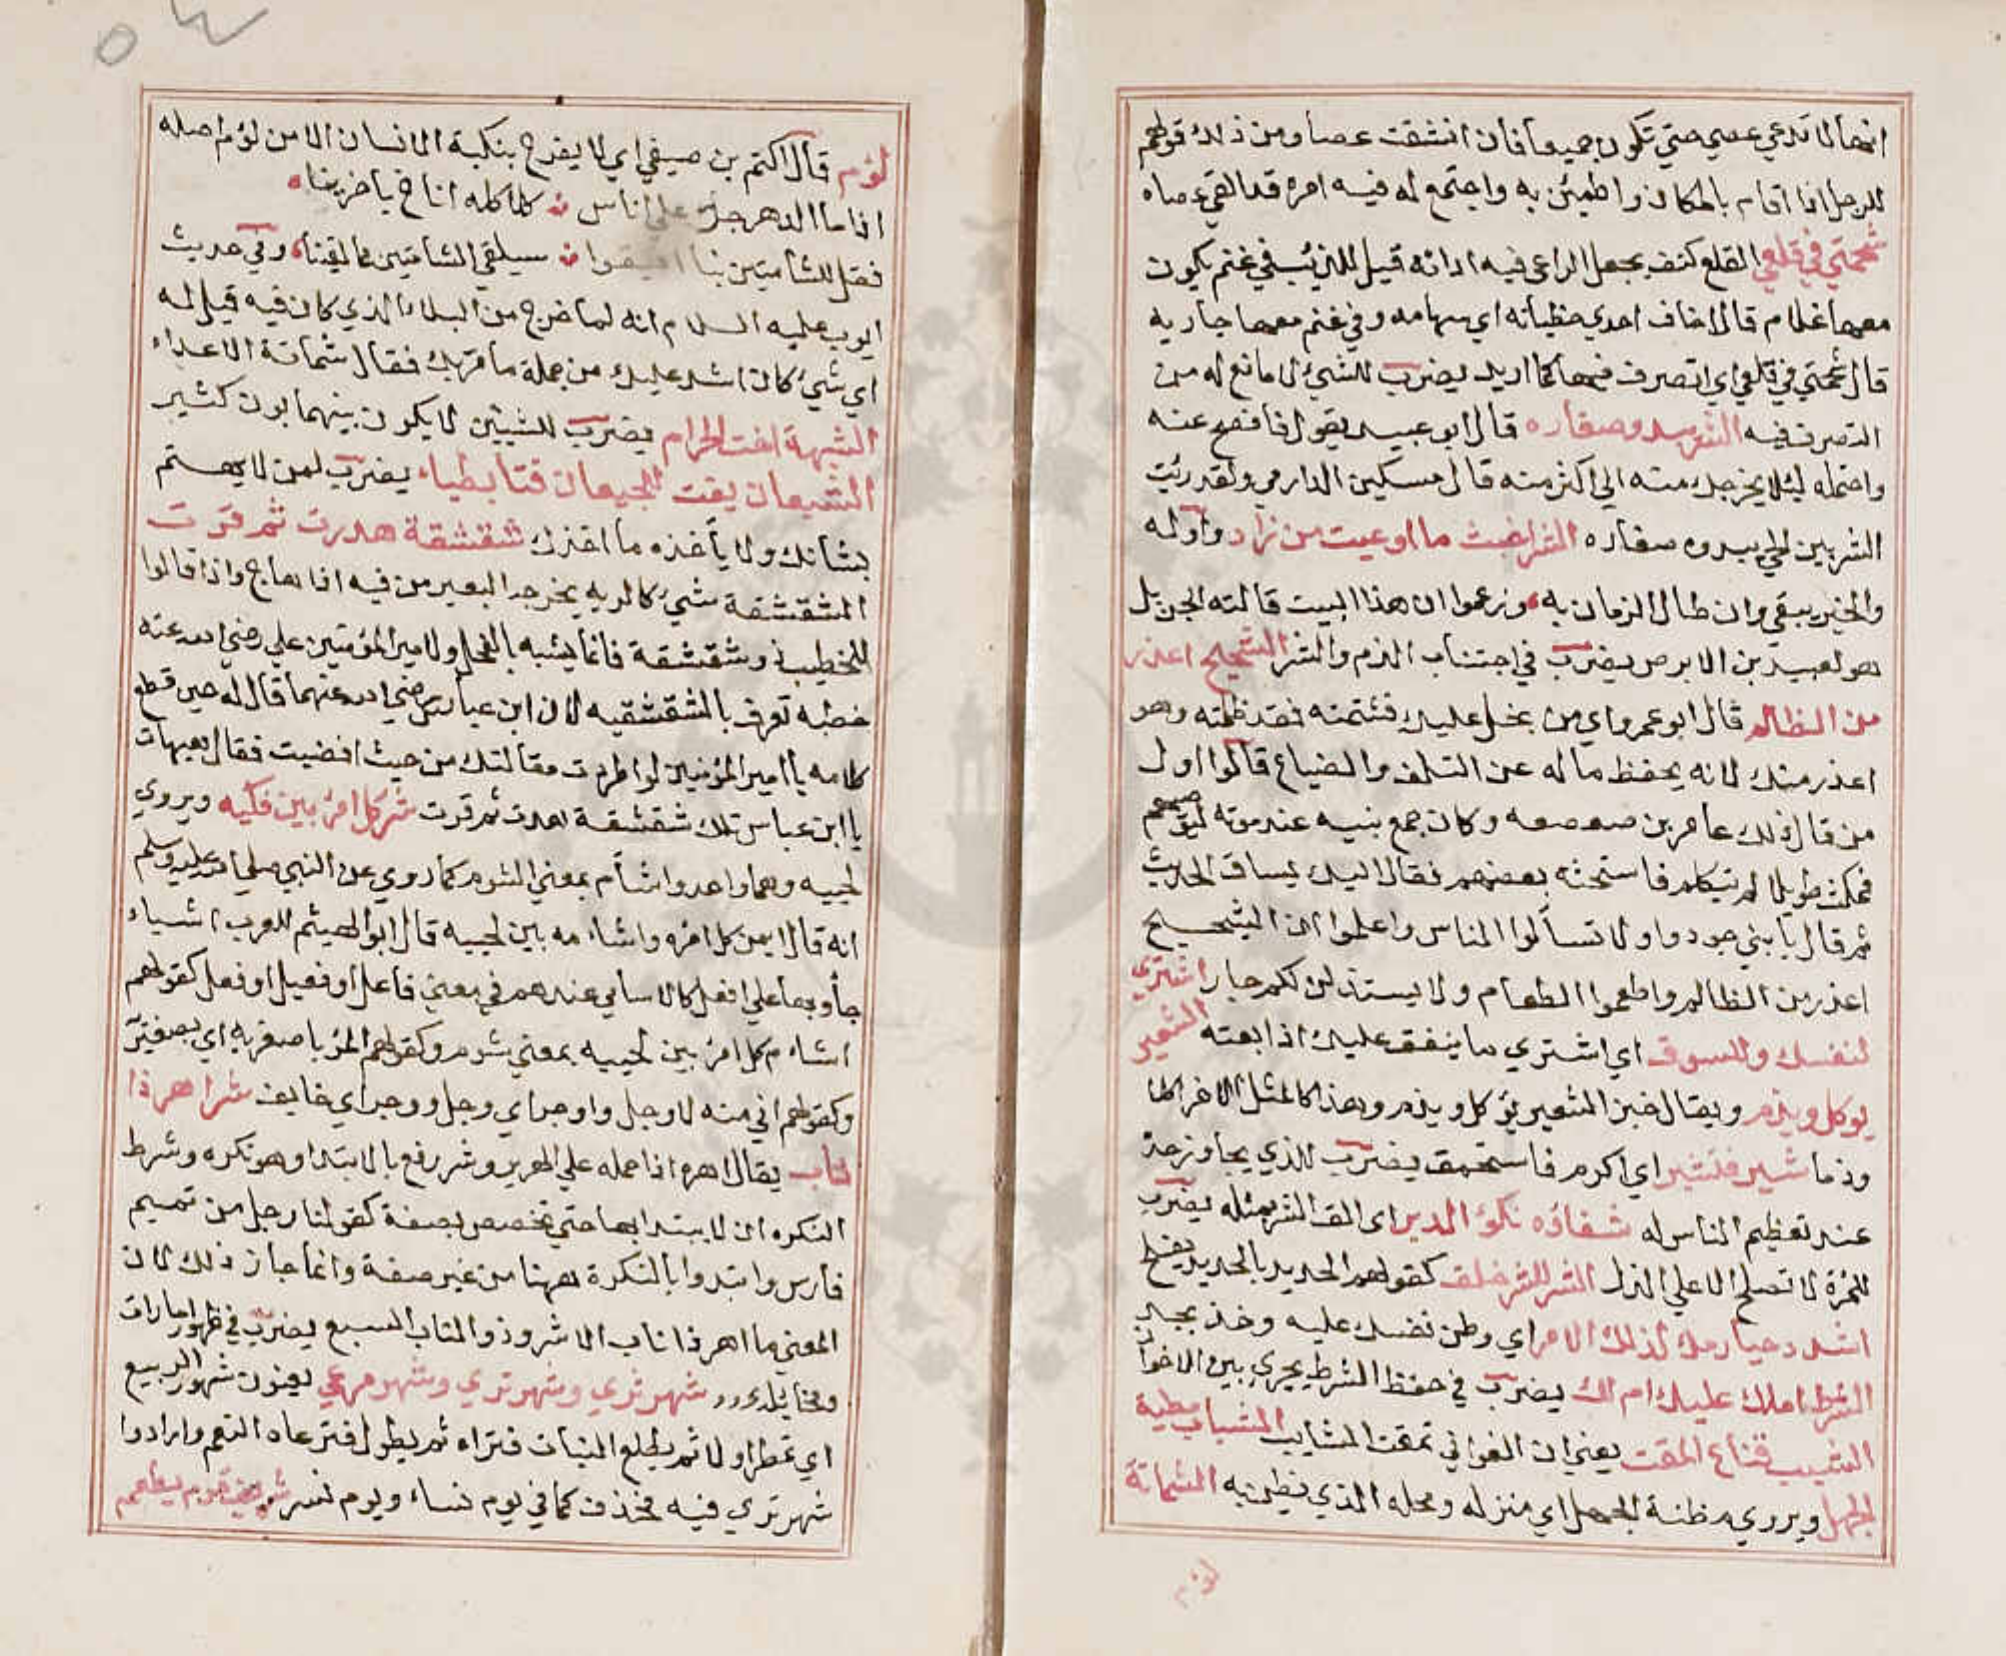 انها لا تدعي عصي حتي تكون جميعا فان انشقت عصا ومن ذلك قولهم
للرجل اذا اقام بالمكان واطمئن به واجتمع له فيه امره قد القي عصاه
شحمتي في قلعي القلع كنف يجعل الراعي فيه اداته قيل للذئب في غنم يكون
معها غلام قال اخاف احدي حظياته اي سهامه وفي غنم معها جاريه
قال شحمتي في قلعي اي اتصرف فيها كما اريد يضرب للشيء لا مانع له من
التصرف فيه الشر يبدوه صغاره قال ابو عبيد يقول فاصفح عنه
واحتمله ليلا يخرجك منه الي اكثر منه قال مسكين الدارمي ولقد رئيت
الشر بين الحي يبدوه صغاره الشر اخبث ما اوعيت من زاد واوله
والخير يبقي وان طال الزمان به وزعموا ان هذا البيت قالته الجن بل
هو لعبيد بن الابرص يضرب في اجتناب الذم والشر الشحيح اعذر
من الظالم قال ابو عمرو اي من بخل عليك فشتمته فقد ظلمته وهو
اعذر منك لانه يحفظ ماله عن التلف والضياع قالوا اول
من قال ذلك عامر بن صعصعه وكان جمع بنيه عند موته ليوصيهم
فمكث طويلا لم يتكلم فاستحثه بعضهم فقال اليك يساق الحديث
ثم قال يا بني جودوا ولا تسألوا الناس واعلموا ان الشحيح
اعذر من الظالم واطعموا الطعام ولا يستذلن لكم جار اشتري
لنفسك وللسوق اي اشتري ما ينفق عليك اذا بعته الشعير
يوكل ويذم ويقال خبز الشعير يؤكل ويذم وهذا كالمثل الاخر اكلا
وذما شبر فتشبر اي اكرم فاستحمق يضرب للذي يجاوز حده
عند تعظيم الناس له شغاؤه نكؤ الدبر اي الق الشر بمثله يضرب
للمرة لا تصلح الا علي الذل الشر للشر خلق كقولهم الحديد بالحديد يفلح
اشدد حيازمك لذلك الامر اي وطن نفسك عليه وخذ بجد
الشرط املك عليك ام لك يضرب في حفظ الشرط يجري بين الاخوان
الشيب قناع المقت يعني ان الغواني تمقت المشايب الشباب مطية
الجهل ويروي مظنة الجهل اي منزله ومحله الذي يظن به الشماتة
لؤم
لؤم قال اكتم بن صيفي اي لا يفرح بنكبة الانسان الا من لؤم اصله
اذا ما الدهر جر علي اناس كلاكله اناخ باخرينا
فقل للشامتين بنا افيقوا سيلقي الشامتين كما لقينا وفي حديث
ايوب عليه السلام انه لما خرج من البلاء الذي كان فيه قيل له
اي شيء كان اشد عليك من جملة ما مر بك فقال شماتة الاعداء
الشبهة اخت الحرام يضرب للشيين لا يكون بينهما بون كثير
الشبعان يفت للجيعان فتا بطياء يضرب لمن لا يهتم
بشانك ولا يأخذه ما اخذك شقشقة هدرت ثم قرت
الشقشقة شيء كالريه يخرجه البعير من فيه اذا هاج واذا قالوا
للخطيب ذو شقشقة فانما يشبه بالفحل ولامير المؤمنين علي رضي الله عنه
خطبه تعرف بالشقشقيه لان ابن عباس رضي الله عنهما قال له حين قطع
كلامه يا امير المؤمنين لو اطردت مقالتك من حيث افضيت فقال هيهات
يا ابن عباس تلك شقشقة هدرت ثم قرت شر كل امرئ بين فكيه ويروي
لحييه وهما واحد واشأم بمعني الشوم كما روي عن النبي صلي الله عليه وسلم
انه قال ايمن كل امره واشاءمه بين لحييه قال ابو الهيثم للعرب اشياء
جأو بها علي افعل كالاسامي عندهم في معني فاعل او فعيل او فعل كقولهم
اشاءم كل امرئ بين لحييه بمعني شوم وكقولهم المرؤ باصغريه اي بصغيريه
وكقولهم اني منه لاوجل واوجر اي وجل ووجر اي خايف شرا هر ذا
ناب يقال اهره اذا حمله علي الهرير وشر رفع بالابتدا وهو نكره وشرط
النكره ان لا يبتدا بها حتي تخصص بصفة كقولنا رجل من تميم
فارس وابتدوا بالنكرة ههنا من غير صفة وانما جاز ذلك لان
المعني ما اهر ذا ناب الا شر وذو الناب السبع يضرب في ظهور امارات
ومخايله شهر ثري وشهر تري وشهر مرعي يعنون شهور الربيع
اي تمطر اولا ثم يطلع النبات فتراه ثم يطول فترعاه النعم وارادوا
شهر تري فيه فحذف كما في يوم نساء ويوم نسر شريق قوم يطعم